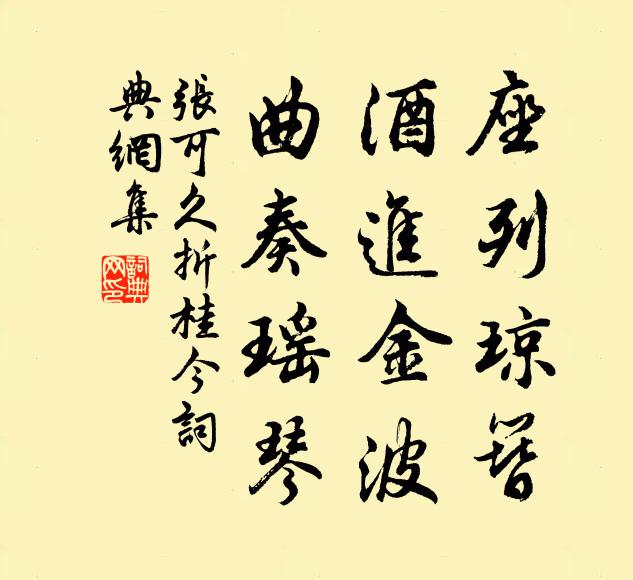 座列琼簪
酒進金波
曲奏瑶琴
張可久折桂令詞
典網集
詞典网印